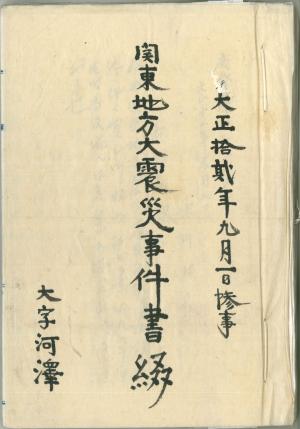 大正拾貳年九月一日惨事
関東地方大震災事件書綴
大字河澤